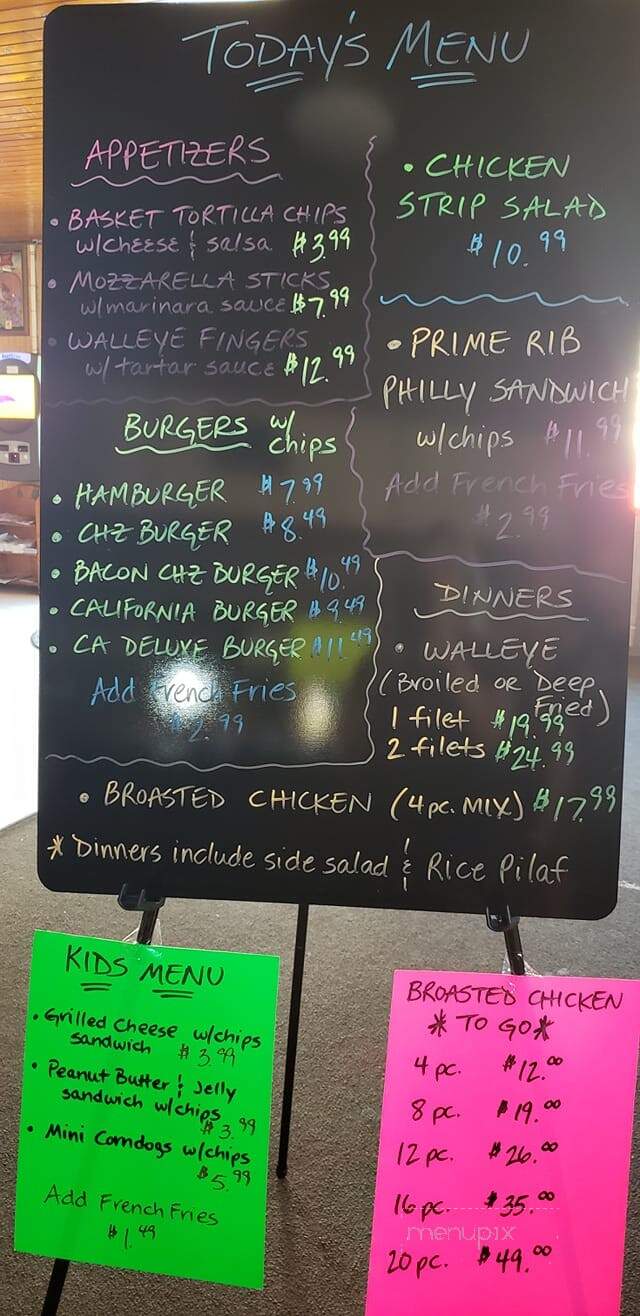 TODAY'S MENU
APPETIZERS
• BASKET TORTILLA CHIPS
w/cheese & salsa $3.99
• MOZZARELLA STICKS
w/marinara sauce $7.99
• WALLEYE FINGERS
w/ tartar sauce $12.99
BURGERS w/
chips
• HAMBURGER $7.99
• CHZ BURGER $8.49
• BACON CHZ BURGER $10.49
• CALIFORNIA BURGER $9.49
• CA DELUXE BURGER $11.49
Add French Fries
$2.99
• CHICKEN
STRIP SALAD
$10.99
• PRIME RIB
PHILLY SANDWICH
w/chips $11.99
Add French Fries
$2.99
DINNERS
• WALLEYE
(Broiled or Deep
Fried)
1 filet $19.99
2 filets $24.99
• BROASTED CHICKEN (4 pc. MIX) $17.99
* Dinners include side salad & Rice Pilaf
KIDS MENU
• Grilled Cheese w/chips
sandwich $3.99
• Peanut Butter & Jelly
sandwich w/chips
$3.99
• Mini Corndogs w/chips
$5.99
Add French Fries
$1.49
BROASTED CHICKEN
* TO GO *
4 pc. $12.00
8 pc. $19.00
12 pc. $26.00
16 pc. $35.00
menupix
20 pc. $49.00